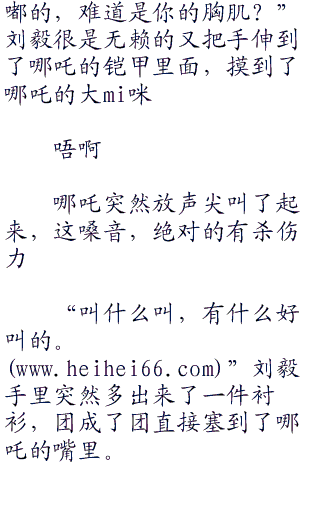 嘟的，难道是你的胸肌？”
刘毅很是无赖的又把手伸到
了哪吒的铠甲里面，摸到了
哪吒的大mi咪
唔啊
哪吒突然放声尖叫了起
来，这嗓音，绝对的有杀伤
力
“叫什么叫，有什么好
叫的。
(www.heihei66.com)”刘毅
手里突然多出来了一件衬
衫，团成了团直接塞到了哪
吒的嘴里。